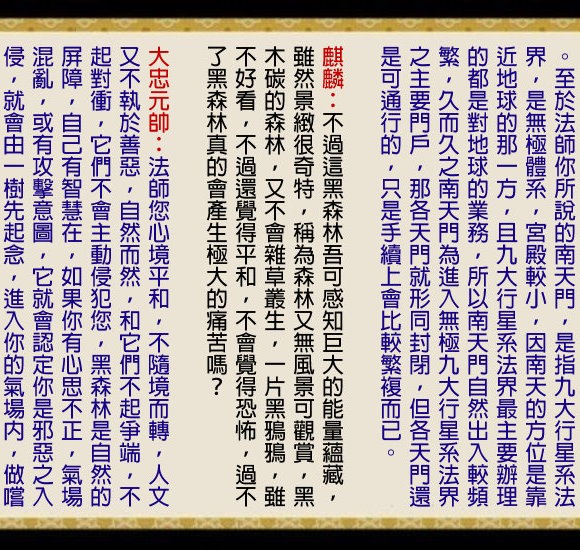 。至於法師你所說的南天門，是指九大行星系法
界，是無極體系，宮殿較小，因南天的方位是靠
近地球的那一方，且九大行星系法界最主要辦理
的都是對地球的業務，所以南天門自然出入較頻
繁，久而久之南天門為進入無極九大行星系法界
之主要門戶，那各天門就形同封閉，但各天門還
是可通行的，只是手續上會比較繁複而已。
麒麟：不過這黑森林吾可感知巨大的能量蘊藏，
雖然景緻很奇特，稱為森林又無風景可觀賞，黑
木碳的森林，又不會雜草叢生，一片黑鴉鴉，雖
不好看，不過還覺得平和，不會覺得恐怖，過不
了黑森林真的會產生極大的痛苦嗎？
大忠元帥：法師您心境平和，不隨境而轉，人文
又不執於善惡，自然而然，和它們不起爭端，不
起對衝，它們不會主動侵犯您，黑森林是自然的
屏障，自己有智慧在，如果你有心思不正，氣場
混亂，或有攻擊意圖，它就會認定你是邪惡之入
侵，就會由一樹先起念，進入你的氣場內，做嚐